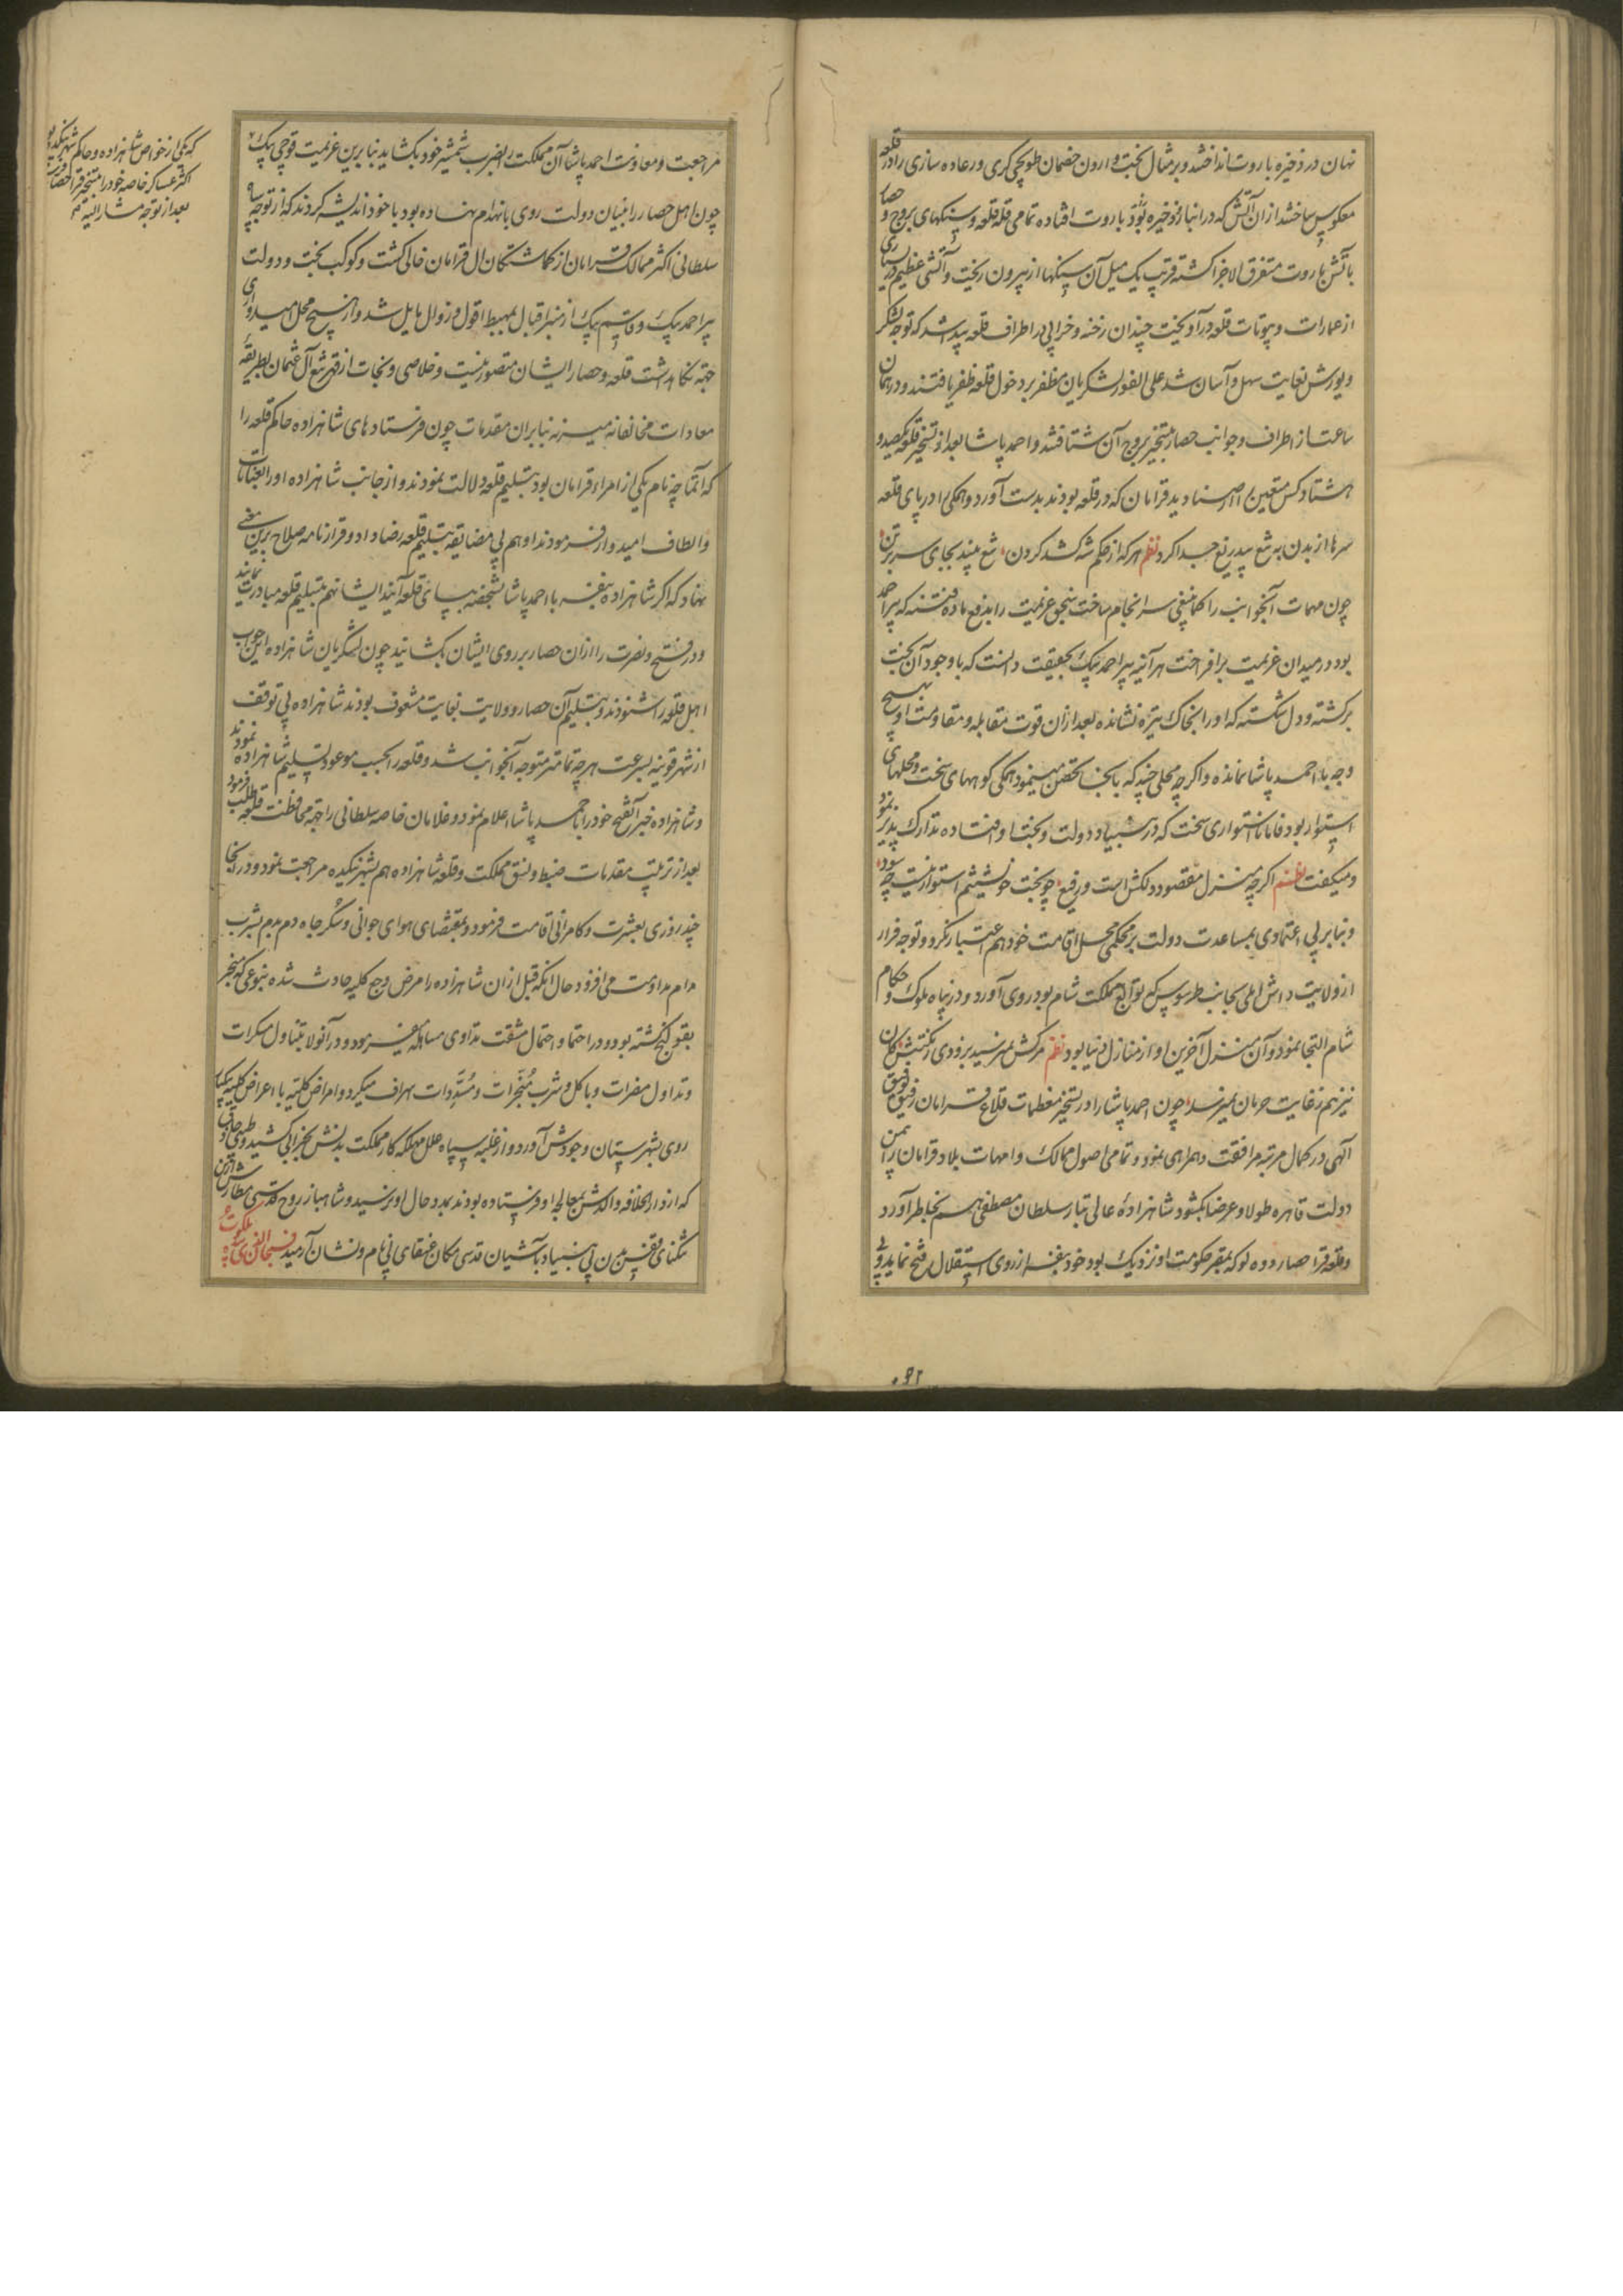 نهان در ذخیره باروت انداختند و بر مثال بخت وارون خصمان طوپچی کری و رعاده سازی را در قلعه
معکوس ساختند از ان آتش که در انبار ذخیره بود باروت افتاده تمامی قله قلعه و سنکهای بروج و حصار
باتش باروت متفرق الاجزا کشته قریب یک میل آن سنکها از بیرون ریخت و آتشی عظیم در بسیاری
از عمارات و بیوتات قلعه در آویخت چندان رخنه و خرابی در اطراف قلعه پیدا شد که توجه لشکر
و یورش بغایت سهل و آسان شد علی الفور لشکریان مظفر بر دخول قلعه ظفر یافتند و در همان
ساعت از اطراف و جوانب حصار بتسخیر بروج آن شتافتند و احمد پاشا بعد از تسخیر قلعه یکصد و
هشتاد کس متعین را از صنادید قرامان که در قلعه بودند بدست آورد و همکی را در پای قلعه
سرها از بدن به تیغ بیدریغ جدا کرد نظم هر که از حکم شه کشد کردن تیغ بیند بجای سر بر تن
چون مهمات آنجوانب را کما ینبغی سرانجام ساخت بنحو عزیمت را بدفع ماده فتنه که پیر احمد
بود در میدان عزیمت برافراخت هر آینه پیر احمد بیک بحقیقت دانست که با وجود آن بخت
برکشته و دل شکسته که او را بخاک تیره نشانده بعد از ان قوت مقابله و مقاومت او بهیچ
وجه با احمد پاشا نمانده و اکر چه محلی چند که بانجا تحصن مینمود همکی کوههای سخت و محلهای
استوار بود فاما نااستواری سخت که در بنیاد دولت و بخت او افتاده تدارک پذیر نبود
و میکفت نظم اکر چه منزل مقصود دلکش است و رفیع چو بخت خویشتنم استوار نیست چه سود
و بنابر بی اعتمادی بمساعدت دولت بر محکمی محل اقامت خود هم اعتبار نکرد و توجه فرار
از ولایت داش ایلی بجانب طرسوس که توابع مملکت شام بود روی آورد و در پناه ملوک و حکام
شام التجا نمود و آن منزل آخرین او از منازل دنیا بود نظم مرکش نمیرسید بزودی ز نکبتش کان
نیز هم ز غایت حرمان نمیرسد چون احمد پاشا را در تسخیر معظمات قلاع قرامان رفیق توفیق
آلهی در کمال مرتبه مرافقت و همراهی نمود و تمامی اصول ممالک و امهات بلاد قرامان را یمن
دولت قاهره طولا و عرضا بکشود شاهزادهٔ عالی تبار سلطان مصطفی هم بخاطر آورد
و قلعه قرا حصار دوه لو که بمقر حکومت او نزدیک بود خود بنفسه از روی استقلال فتح نماید و بی
مراجعت و معاونت احمد پاشا آن مملکت را بضرب شمشیر خود بکشاید بنابرین عزیمت قوجی بیک
که یکی از خواص شاهزاده و حاکم شهر نیکده بود
اکثر عساکر خاصه خود را بتسخیر قرا حصار
بعد از توجه مشار الیه
چون اهل حصار را بنیان دولت روی بانهدام نهاده بود با خود اندیشه کردند که از توجه سپاه
سلطانی اکثر ممالک قرامان از کماشتکان ال قرامان خالی کشت و کوکب بخت و دولت
پیر احمد بیک و قاسم بیک از منبر اقبال بمهبط افول و زوال مایل شد و از هیچ محل امیدواری
جهته نکاهداشت قلعه و حصار ایشان متصور نیست و خلاصی و نجات از قهر تیغ آل عثمان بطریقه
معادات مخالفانه میسر نه بنابران مقدمات چون فرستادهای شاهزاده حاکم قلعه را
که آتماجه نام یکی از امراء قرامان بود بتسلیم قلعه دلالت نمودند و از جانب شاهزاده او را بعنایات
و الطاف امیدوار فرمودند او هم بی مضایقه بتسلیم قلعه رضا داد و قرارنامه صلاح برین معنی
نهاد که اکر شاهزاده بنفسه با احمد پاشا بشخصه بپای قلعه آیند ایشان هم بتسلیم قلعه مبادرت نمایند
و در فتح و نصرت را از ان حصار بر روی ایشان بکشایند چون لشکریان شاهزاده این جواب
اهل قلعه را شنودند و بتسلیم آن حصار و ولایت بغایت مشعوف بودند شاهزاده بی توقف
از شهر قونیه بسرعت هر چه تمامتر متوجه آنجوانب شد و قلعه را بحسب موعود تسلیم شاهزاده نمودند
و شاهزاده خبر آن فتح خود را با احمد پاشا اعلام نمود و غلامان خاصه سلطانی را جهته محافظت قلعه طلب فرمود
بعد از ترتیب مقدمات ضبط و نسق مملکت و قلعه شاهزاده هم بشهر نیکده مراجعت نمود و در انجا
چند روزی بعشرت و کامرانی اقامت فرمود و بمقتضای هوای جوانی و سکر جاه دم بدم بشرب
مدام مداومت می افزود حال آنکه قبل از ان شاهزاده را مرض وجع کلیه حادث شده بنوعی که منجر
بقولنج کشته بود و در احتما و احتمال مشقت تداوی مساهله میفرمود و در آنولا بتناول مسکرات
و تداول مضرات و باکل و شرب مبخرات و مسددات اسراف میکرد و امراض کلیه با اعراض کلیه بیکبار
روی بشهرستان وجودش آورد و از غلبه سپاه علل مهلکه کار مملکت بدنش بخرابی کشید و طبیبی حاذق
که از دار الخلافه والدش بمعالجه او فرستاده بودند بمدد حال او نرسید و شاهباز روح قدسی مطارش از ین
تنکنای قفس بدن بی بنیاد باشیان قدسی مکان عنقای بی نام و نشان آرمید فسبحان الذی بیده ملکوت